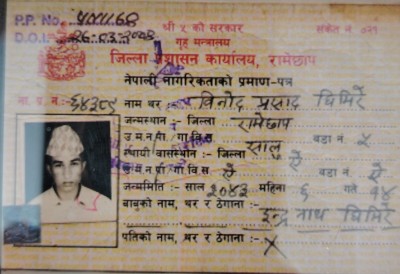 P.P. No.
श्री ५ को सरकार
संकेत नं ०२१
D.O.I.
गृह मन्त्रालय
जिल्ला प्रशासन कार्यालय, रामेछाप
नेपाली नागरिकताको प्रमाण-पत्र
ना. प्र. नं.
नाम थर :- विनोद प्रसाद घिमिरे
जन्मस्थान :- जिल्ला रामेछाप
उ.म.न.पा. गा वि स सालु वडा नं २
स्थायी वासस्थान :- जिल्ला ऐ
उ.म.न.पा. गा वि स ऐ वडा नं ऐ
जन्ममिति :- साल २०४३ महिना ६ गते १४
बाबुको नाम, थर र ठेगाना :- इन्द्र नाथ घिमिरे
पतिको नाम, थर र ठेगाना :- X